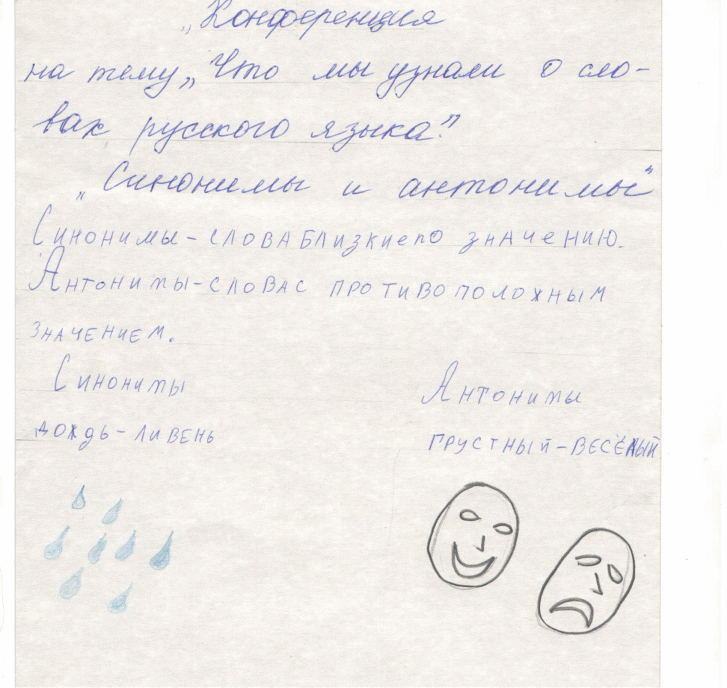 „Конференция
на тему „Что мы узнали о сло-
вах русского языка?"
„Синонимы и антонимы"
Синонимы - слова близкие по значению.
Антонимы - слова с противополохным
значением.
Синонимы
Антонимы
дождь - ливень
грустный - весёлый